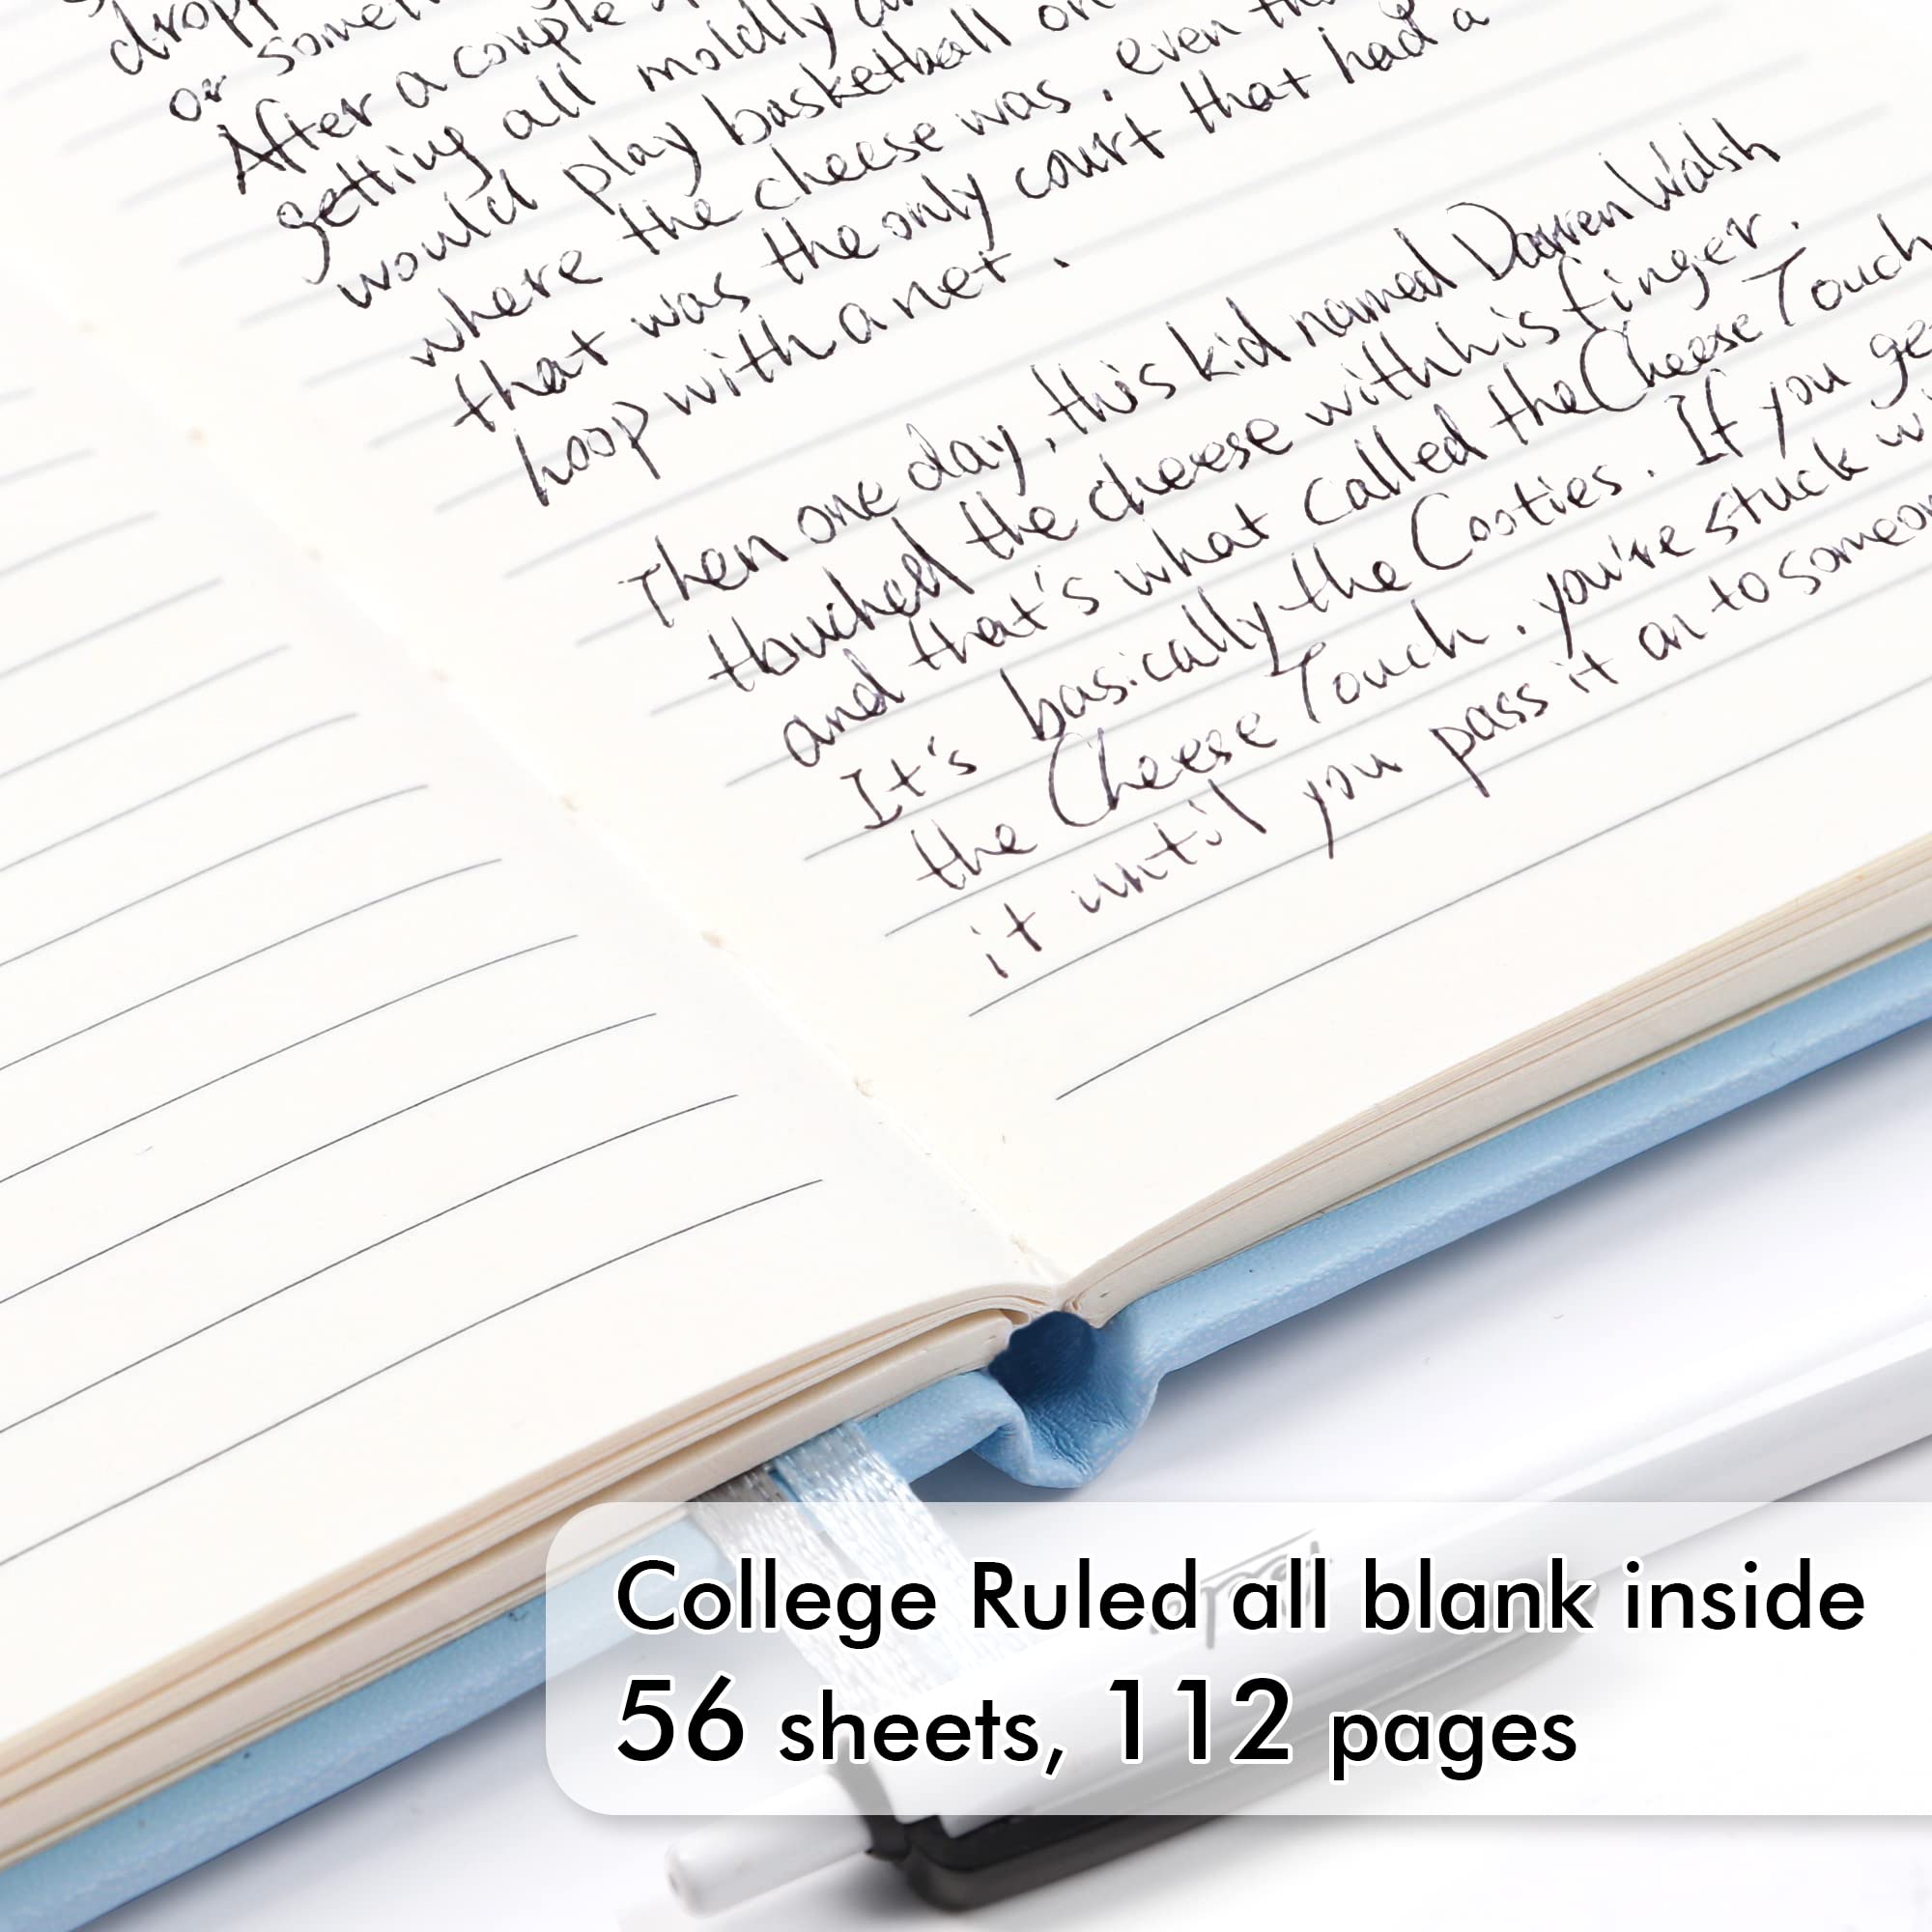 or
After a couple
getting all moldly
would play basketball on
where the cheese was. even
that was the only court that had a
hoop with a net.
Then one day, this kid named Darren Walsh
touched the cheese with his finger.
and that's what called the Cheese Touch
It's basically the Cooties. If you ge
the Cheese Touch, you're stuck wi
it until you pass it on to someon
College Ruled all blank inside
56 sheets, 112 pages